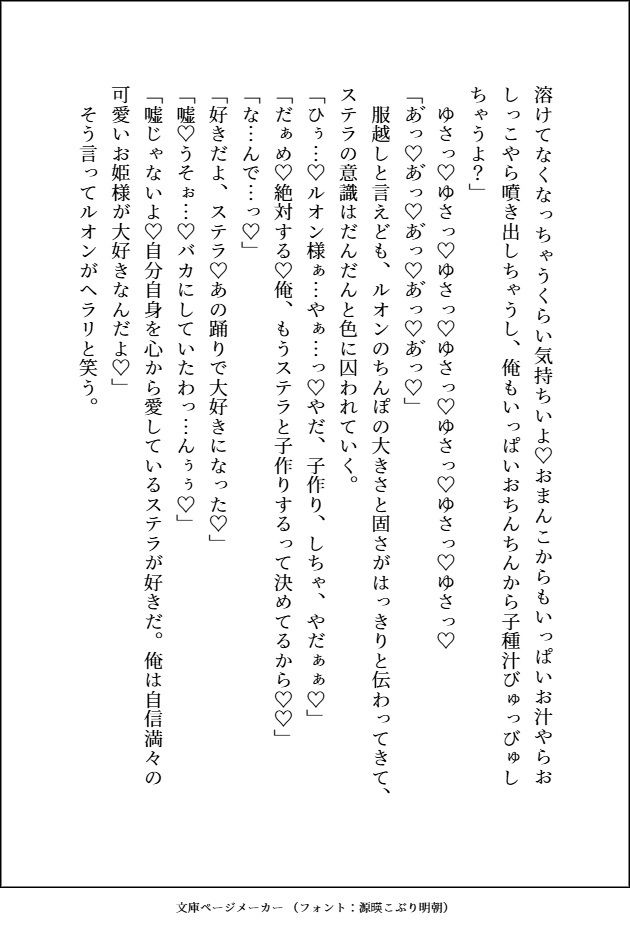 溶けてなくなっちゃうくらい気持ちいよ♡おまんこからもいっぱいお汁やらお
しっこやら噴き出しちゃうし、俺もいっぱいおちんちんから子種汁びゅっびゅし
ちゃうよ？」
ゆさっ♡ゆさっ♡ゆさっ♡ゆさっ♡ゆさっ♡ゆさっ♡ゆさっ♡
「あ゙っ♡あ゙っ♡あ゙っ♡あ゙っ♡あ゙っ♡」
服越しと言えども、ルオンのちんぽの大きさと固さがはっきりと伝わってきて、
ステラの意識はだんだんと色に囚われていく。
「ひぅ…♡ルオン様ぁ…やぁ…っ♡やだ、子作り、しちゃ、やだぁぁ♡」
「だぁめ♡絶対する♡俺、もうステラと子作りするって決めてるから♡♡」
「な…んで…っ♡」
「好きだよ、ステラ♡あの踊りで大好きになった♡」
「嘘♡うそぉ…♡バカにしていたわっ…んぅぅ♡」
「嘘じゃないよ♡自分自身を心から愛しているステラが好きだ。俺は自信満々の
可愛いお姫様が大好きなんだよ♡」
そう言ってルオンがヘラリと笑う。
文庫ページメーカー （フォント：源暎こぶり明朝）